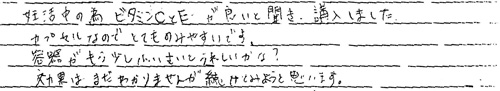 妊活中の為 ビタミンCとE が良いと聞き、購入しました
カプセルなので とてものみやすいです。
容器がもう少し小さいとうれしいかな?
効果は まだ わかりませんが 続けてみようと思います。